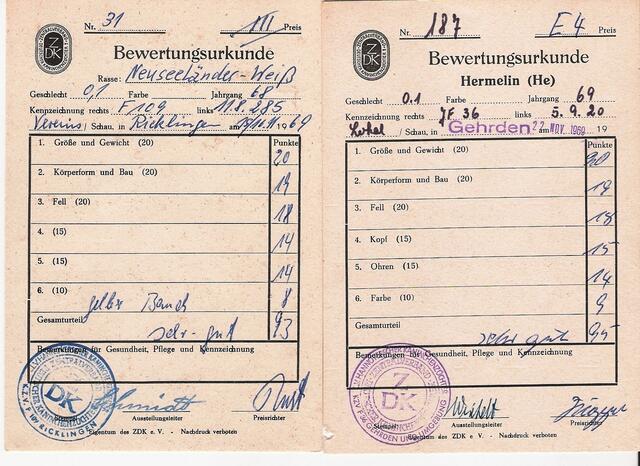 Nr. 31 III Preis
Bewertungsurkunde
Rasse: Neuseeländer-Weiß
Geschlecht 0,1 Farbe Jahrgang 68
Kennzeichnung rechts F 109 links 118.285
Vereins / Schau, in Ricklingen am 1969
1. Größe und Gewicht (20) Punkte 20
2. Körperform und Bau (20) 19
3. Fell (20) 18
4. (15) 14
5. (15) 14
6. (10) gelber Bauch 8
Gesamturteil sehr-gut 93
Bemerkungen für Gesundheit, Pflege und Kennzeichnung
ZDK
RICKLINGEN
Schmidt
Ausstellungsleiter Preisrichter
Eigentum des ZDK e. V. - Nachdruck verboten
Nr. 187 E 4 Preis
Bewertungsurkunde
Hermelin (He)
Geschlecht 0.1 Farbe Jahrgang 69
Kennzeichnung rechts JF 36 links 5.9.20
Lokal / Schau, in Gehrden am 22. NOV. 1969 19
1. Größe und Gewicht (20) Punkte 20
2. Körperform und Bau (20) 19
3. Fell (20) 18
4. Kopf (15) 15
5. Ohren (15) 14
6. Farbe (10) 9
Gesamturteil sehr gut 95
Bemerkungen für Gesundheit, Pflege und Kennzeichnung
ZDK
GEHRDEN UND UMGEBUNG
Stempel: Ausstellungsleiter Preisrichter
Eigentum des ZDK e. V. - Nachdruck verboten